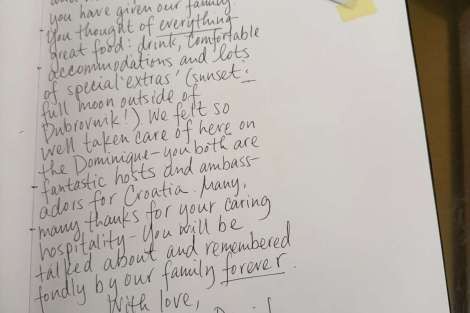 you have given our family
You thought of everything -
great food: drink, comfortable
accommodations and lots
of special 'extras' (sunset :
full moon outside of
Dubrovnik!) We felt so
well taken care of here on
the Dominique - you both are
fantastic hosts and ambass-
adors for Croatia. Many,
many thanks for your caring
hospitality - You will be
talked about and remembered
fondly by our family forever.
With love,